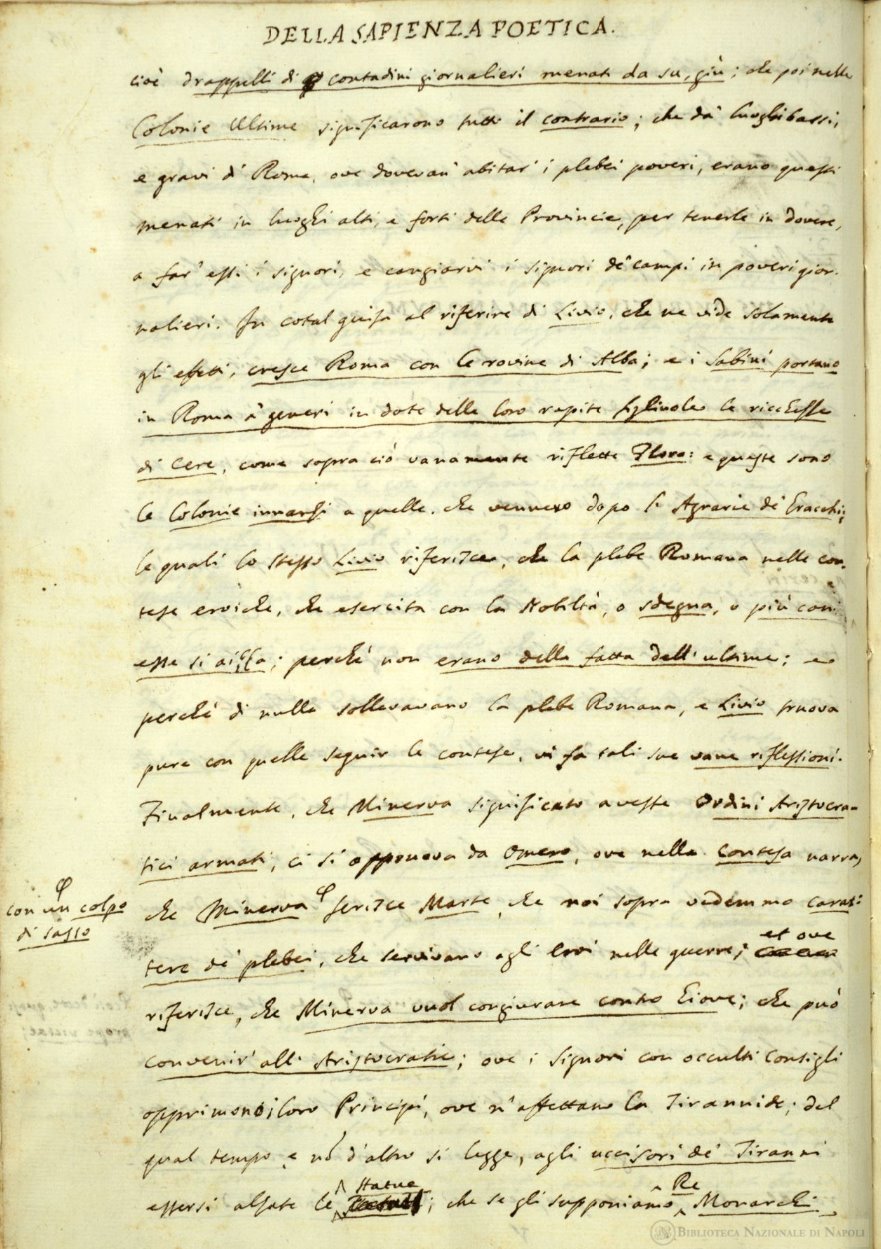 DELLA SAPIENZA POETICA.
cioè drappelli di contadini giornalieri menati da su, giù; che poi nelle
Colonie Ultime significarono tutto il contrario; che da' luoghi bassi,
e gravi di Roma, ove dovevan' abitar' i plebei poveri, erano questi
menati in luoghi alti, e forti delle Provincie, per tenerle in dovere,
a far' essi i signori, e cangiarvi i signori de' campi in poveri gior-
nalieri. In cotal guisa al riferire di Livio, che ne vide solamente
gli effetti, cresce Roma con le rovine di Alba; e i Sabini portano
in Roma a' generi in dote delle loro rapite figliuole le ricchezze
di Cere, come sopra ciò vanamente riflette Floro: e queste sono
le Colonie innanzi a quelle, che vennero dopo l' Agrarie de' Gracchi;
le quali lo stesso Livio riferisce, che la plebe Romana nelle con-
tese eroiche, che esercita con la Nobiltà, o sdegna, o più con
esse si aizza; perchè non erano della fatta dell' ultime; e
perchè di nulla sollevavano la plebe Romana, e Livio truova
pure con quelle seguir le contese, vi fa tali sue vane riflessioni.
Finalmente, che Minerva significato avesse Ordini Aristocra-
tici armati, ci si appruova da Omero, ove nella Contesa narra,
che Minerva φ ferisce Marte, che noi sopra vedemmo carat-
con un colpo
di sasso
tere de' plebei, che servivano agli eroi nelle guerre; et ove
riferisce, che Minerva vuol congiurare contro Giove; che può
convenir' all' Aristocrazie; ove i Signori con occulti consigli
opprimono i loro Principi, ove n' affettano la Tirannide; del
qual tempo, e nõ d' altro si legge, agli uccisori de' Tiranni
essersi alzate le statue; che se gli supponiamo Re Monarchi,
BIBLIOTECA NAZIONALE DI NAPOLI